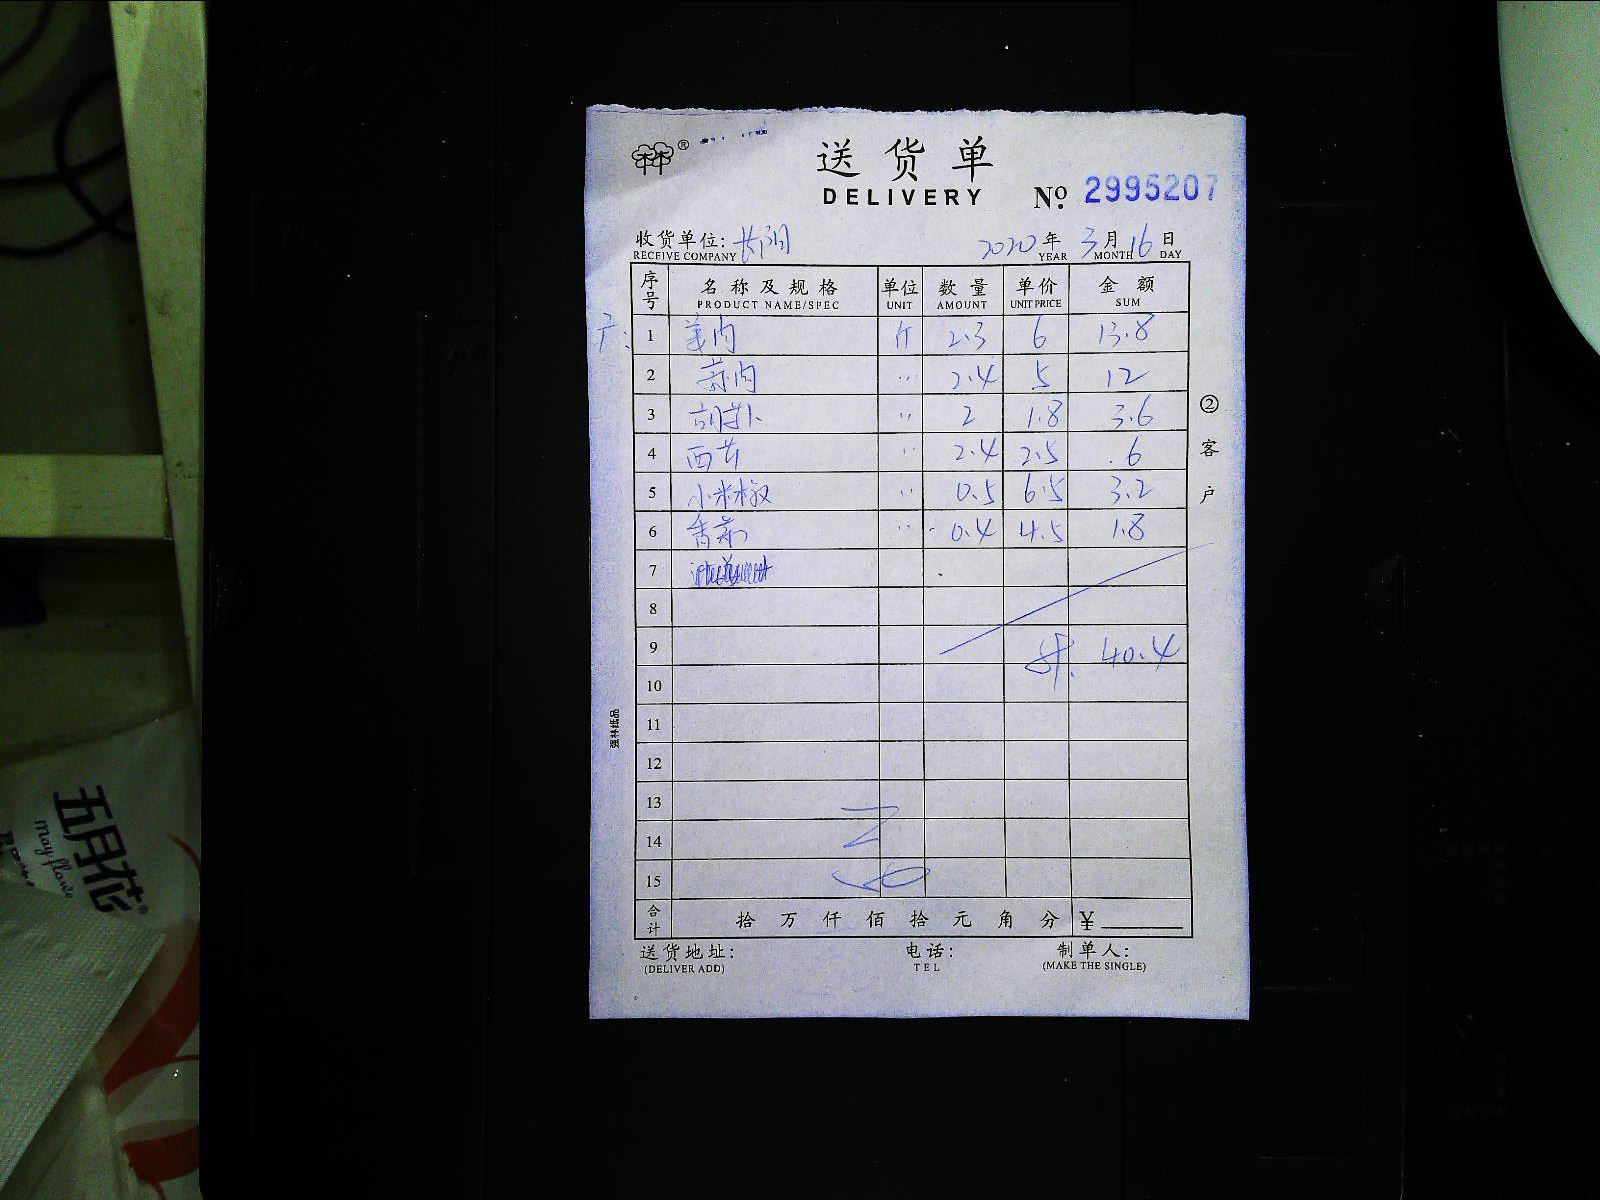 送货单
DELIVERY
№ 2995207
收货单位: 长阳 2020年 3月16日
RECEIVE COMPANY YEAR MONTH DAY
序号 名称及规格 单位 数量 单价 金额
PRODUCT NAME/SPEC UNIT AMOUNT UNIT PRICE SUM
1 姜肉 斤 2.3 6 13.8
2 蒜肉 〃 2.4 5 12
3 胡萝卜 〃 2 1.8 3.6
4 西芹 〃 2.4 2.5 6
5 小米椒 〃 0.5 6.5 3.2
6 香菜 〃 0.4 4.5 1.8
7
8
9 40.4
10
11
12
13
14
15
合计 拾万仟佰拾元角分 ¥
送货地址: 电话: 制单人:
(DELIVER ADD) TEL (MAKE THE SINGLE)
②客户
强林纸品
五月花
may flower